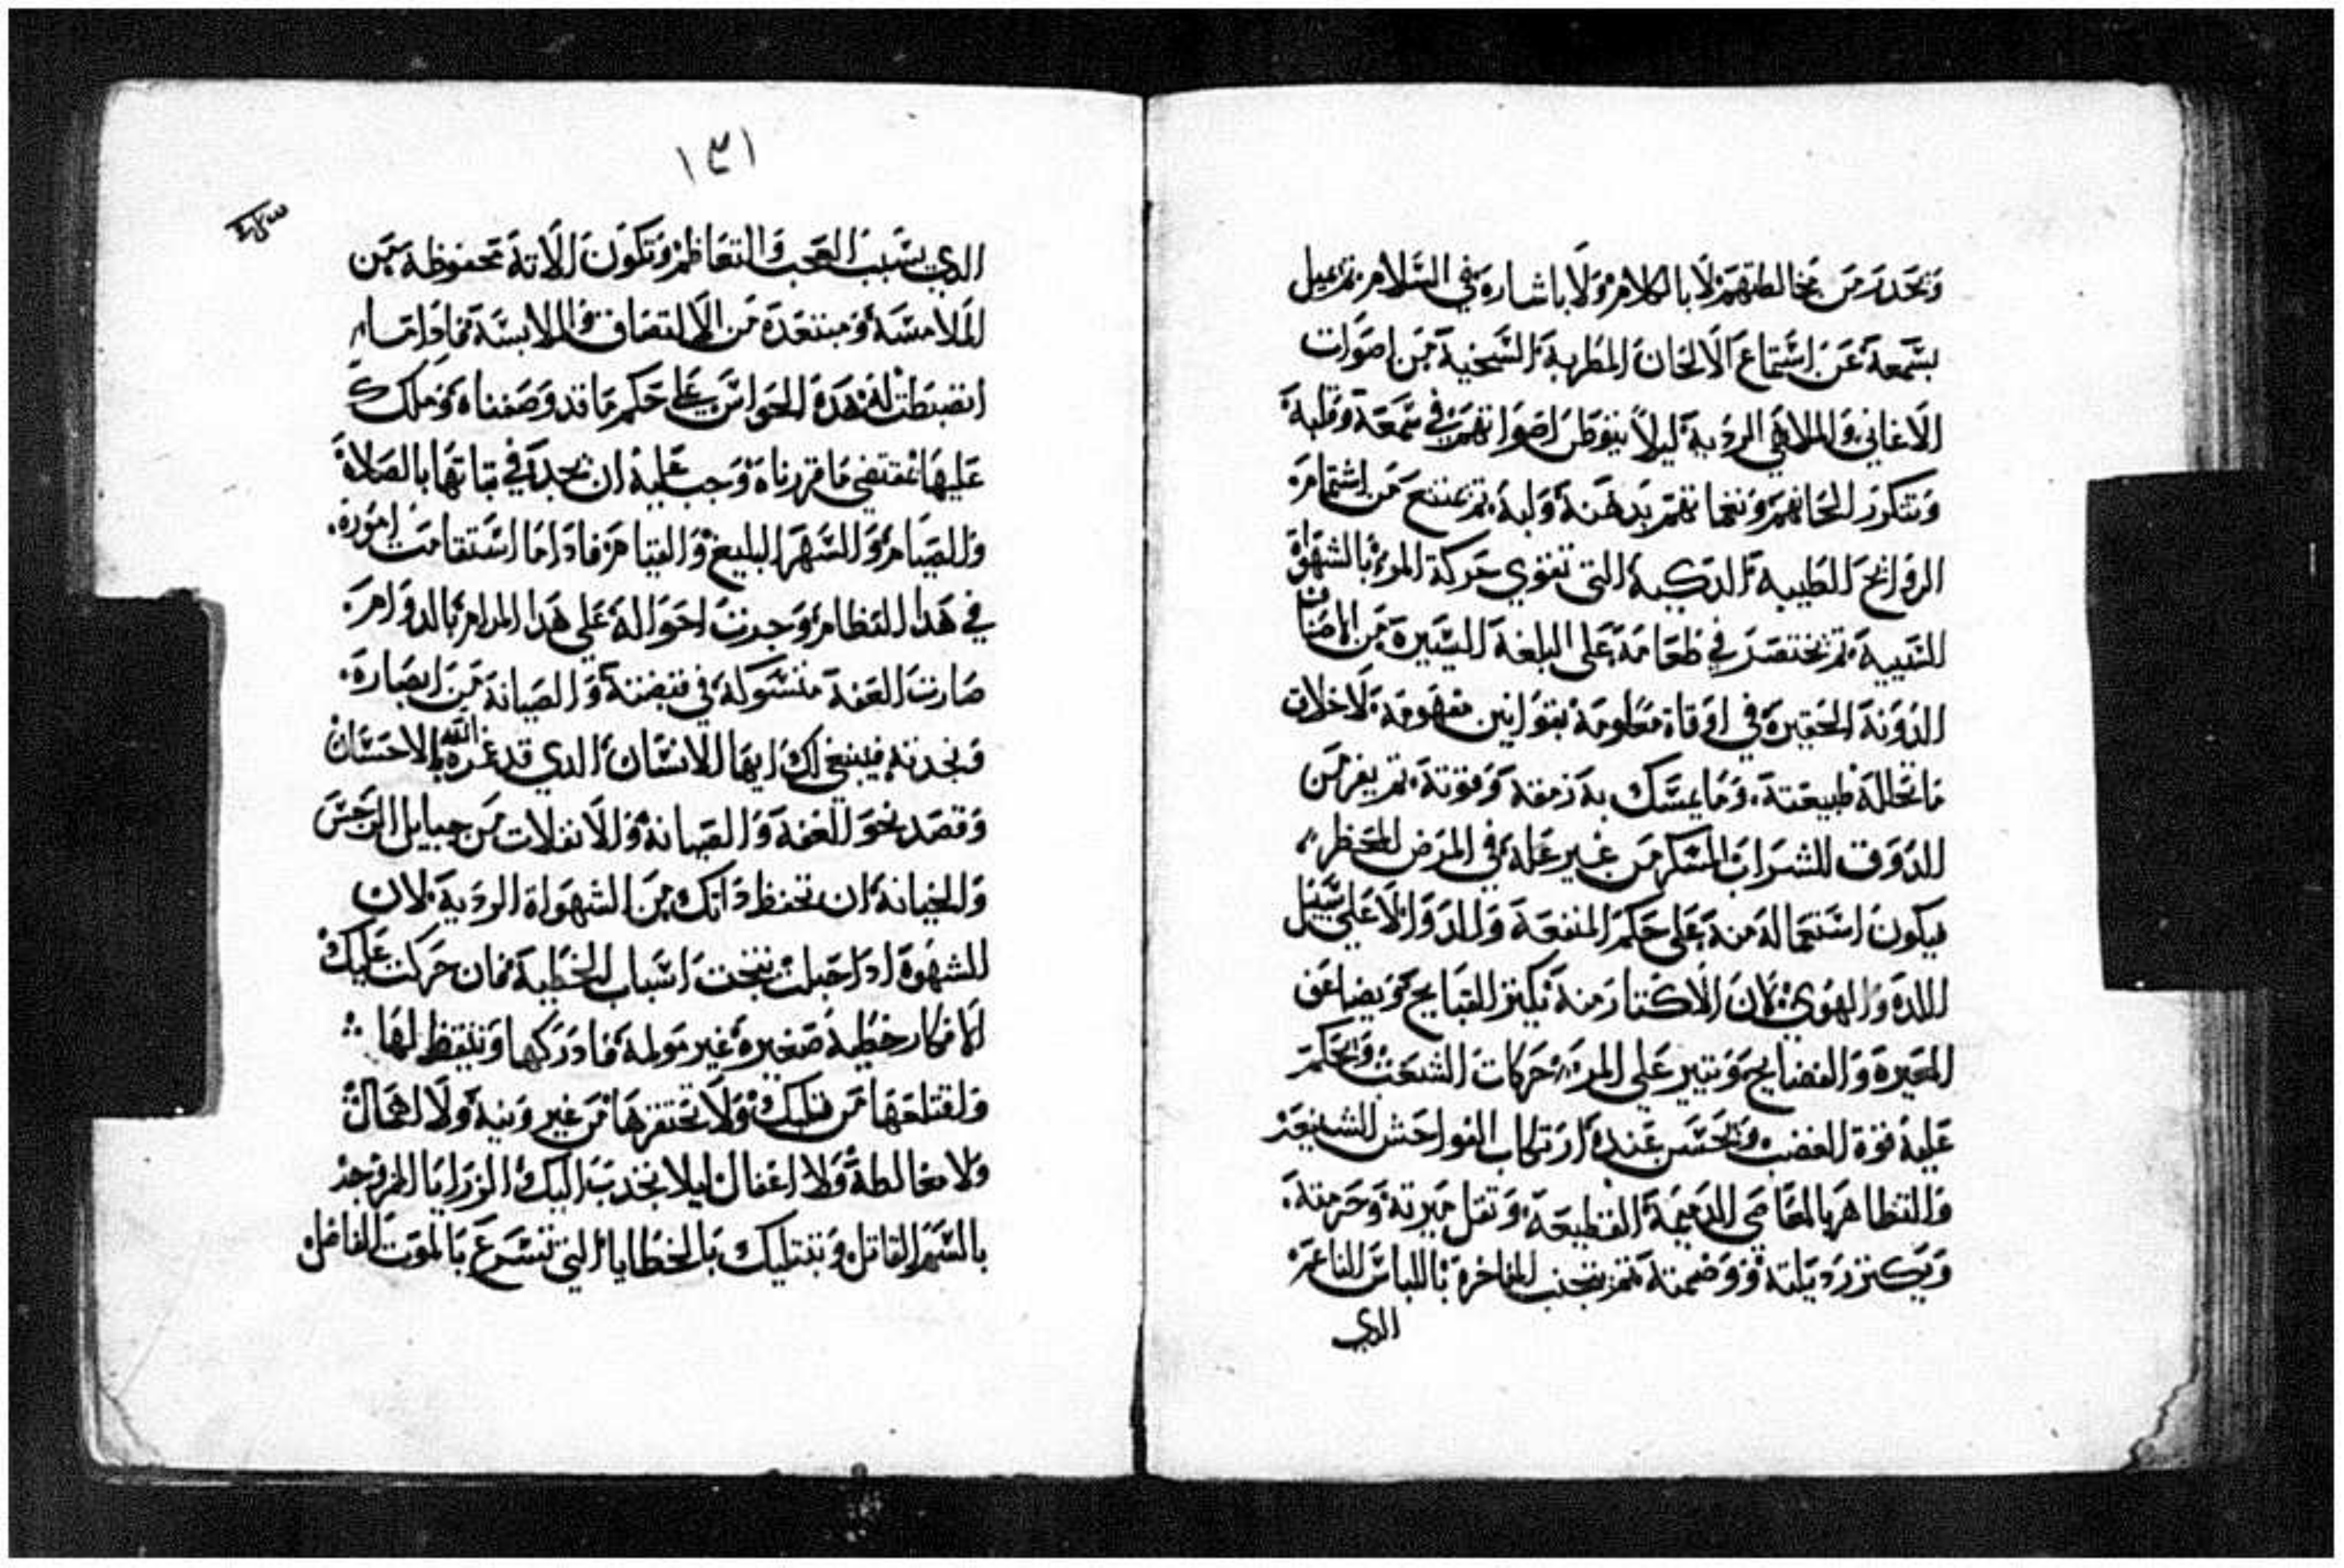 وتحدر من مخالطتهم لا بالكلام ولا باشاره في السلام ثم يميل
بسمعة عن استماع الالحان المطربة الشجية من اصوات
الاغاني والملاهي الردية ليلا ينوطن اصواتهم في سمعة وقلبة
وتتكرر الحانهم ونغماتهم بدهنة ولبة ثم يمتنع من اشتمامه
الروايح الطيبة الدكية التي تقوي حركة المرء بالشهواة
الشبيبة ثم يختصر في طعامة على البلغة اليسيرة من الاصناف
الدونة الحقيرة في اوقاة معلومة بقوانين مفهومة لاخلاف
ما تحللة طبيعتة وما يمسك بة رمقة وقوتة ثم يفر من
الدوق للشراب المسكر من غير علة في المرض المحظر
فيكون استعمالة منة على حكم المنفعة والدوا لا على سبيل
اللدة والهوي لان الاكتار منة يكنز القبايح ويضاعف
المعيرة والفضايح ويتير على المرء حركات الشبعت ويحكم
علية قوة الغضب ويحسن عندة ارتكاب الفواحش الشنيعة
والتظاهر بالمعاصي الدميمة الفظيعة وتقل ميرتة وحرمتة
ويكنز رديلتة ووضمتة ثم يتجنب المفاخرة باللباس الناعمة
الدي
١٣١
الدي يسبب العجب والتعاظم وتكون الاتة محفوظة من
الملامسة ومبتعدة من الالتصاق والملابسة فاداما
انضبطت لة هدة الحواس على حكم ما قد وصفناه وملك
عليها بمقتضي ما قررناه وجب علية ان يجد في تباتها بالصلاة
والصيام والسهر البليغ والقيام فاداما استقامت امورة
في هدا النظام وجرت احوالة على هدا المرام بالدوام
صارت العفة متسولة في قبضتة والصيانة من ابصارة
ونجدتة فينبغي لك ايها الانسان الدي قد غمره الله بالاحسان
وقصد نحو العفة والصيانة والانفلات من حبايل الرجس
والخيانة ان تحفظ داتك من الشهواة الردية لان
الشهوة ادا حبلت نتجت اسباب الخطية فان حركت عليك
الافكار خطية صغيرة غير مولمة فادركها وتيقظ لها
واقتلعها من قلبك ولا تحتقرها من غير ونية ولا اهمال
ولا مغالطة ولا اغفال ليلا تجدب اليك الرزايا المزوجة
بالسم القاتل وتبتليك بالخطايا التي تسرع بالموت الفاضل